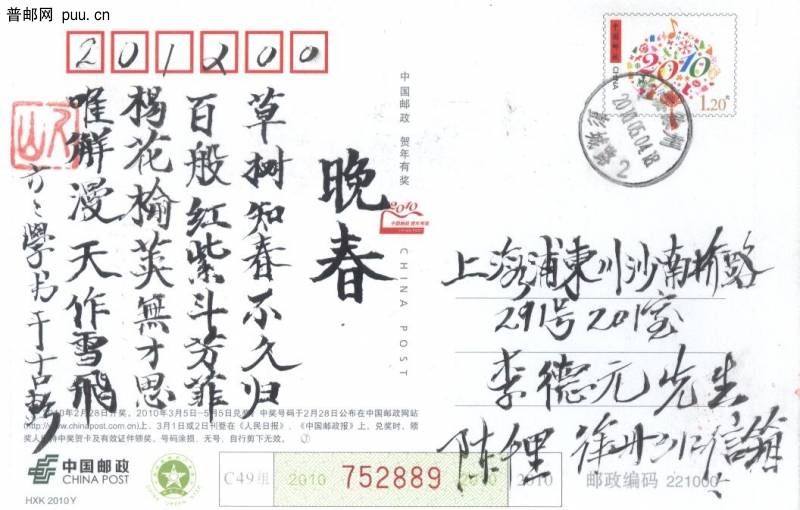 普邮网 puu.cn
201200
中国邮政
CHINA
2010
1.20元
2010.05.04.18
彭城路2
中国邮政 贺年有奖
2010
中国邮政 贺年有奖
CHINA POST
晚春
草树知春不久归
百般红紫斗芳菲
杨花榆荚無才思
唯解漫天作雪飛
上海浦東川沙南桥路
291号201室
李德元先生
2010年2月28日开奖，2010年3月5日-5月5日兑奖。中奖号码于2月28日公布在中国邮政网站
(http://www.chinapost.com.cn)上、3月1日或2日刊登在《人民日报》、《中国邮政报》上，兑奖时，领
奖人须持中奖贺卡及有效证件领奖，号码涂损、无号，自行剪下无效。 ⑦
中国邮政
CHINA POST
HXK 2010Y
C49组
2010
752889
2010
2010
邮政编码 221000